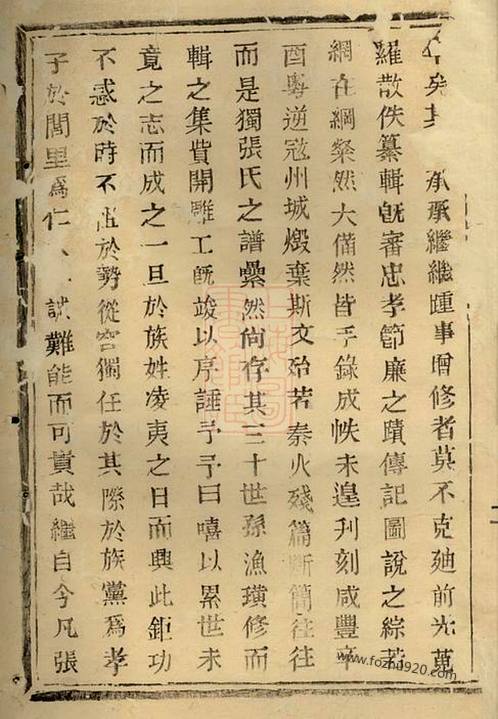 矣其 承承繼繼踵事增修者莫不克廸前光蒐
羅散佚纂輯旣審忠孝節廉之蹟傳記圖說之綜若
網在綱粲然大備然皆手錄成帙未遑刋刻咸豐辛
酉粵逆冦州城燬棄斯文殆若秦火殘篇斷簡往往
而是獨張氏之譜纍然尙存其三十世孫漁璜修而
輯之集貲開雕工旣竣以序諈予予曰嘻以累世未
竟之志而成之一旦於族姓凌夷之日而興此鉅功
不惑於時不 於勢從容獨任於其際於族黨爲孝
子於閭里爲仁 誠難能而可貴哉繼自今凡張
www.fozhu920.com